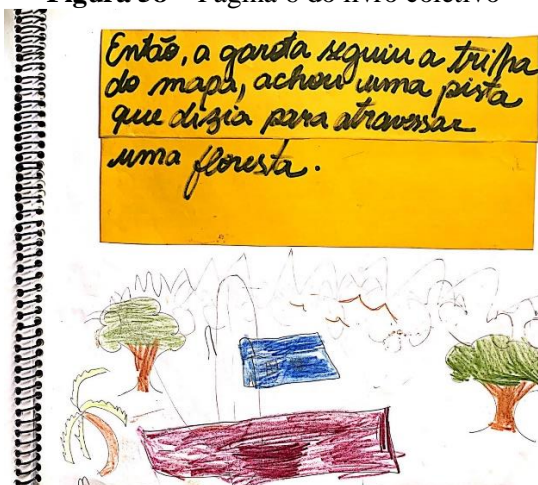 Figura 38 – Página 6 do livro coletivo
Então, a garota seguiu a trilha
do mapa, achou uma pista
que dizia para atravessar
uma floresta.